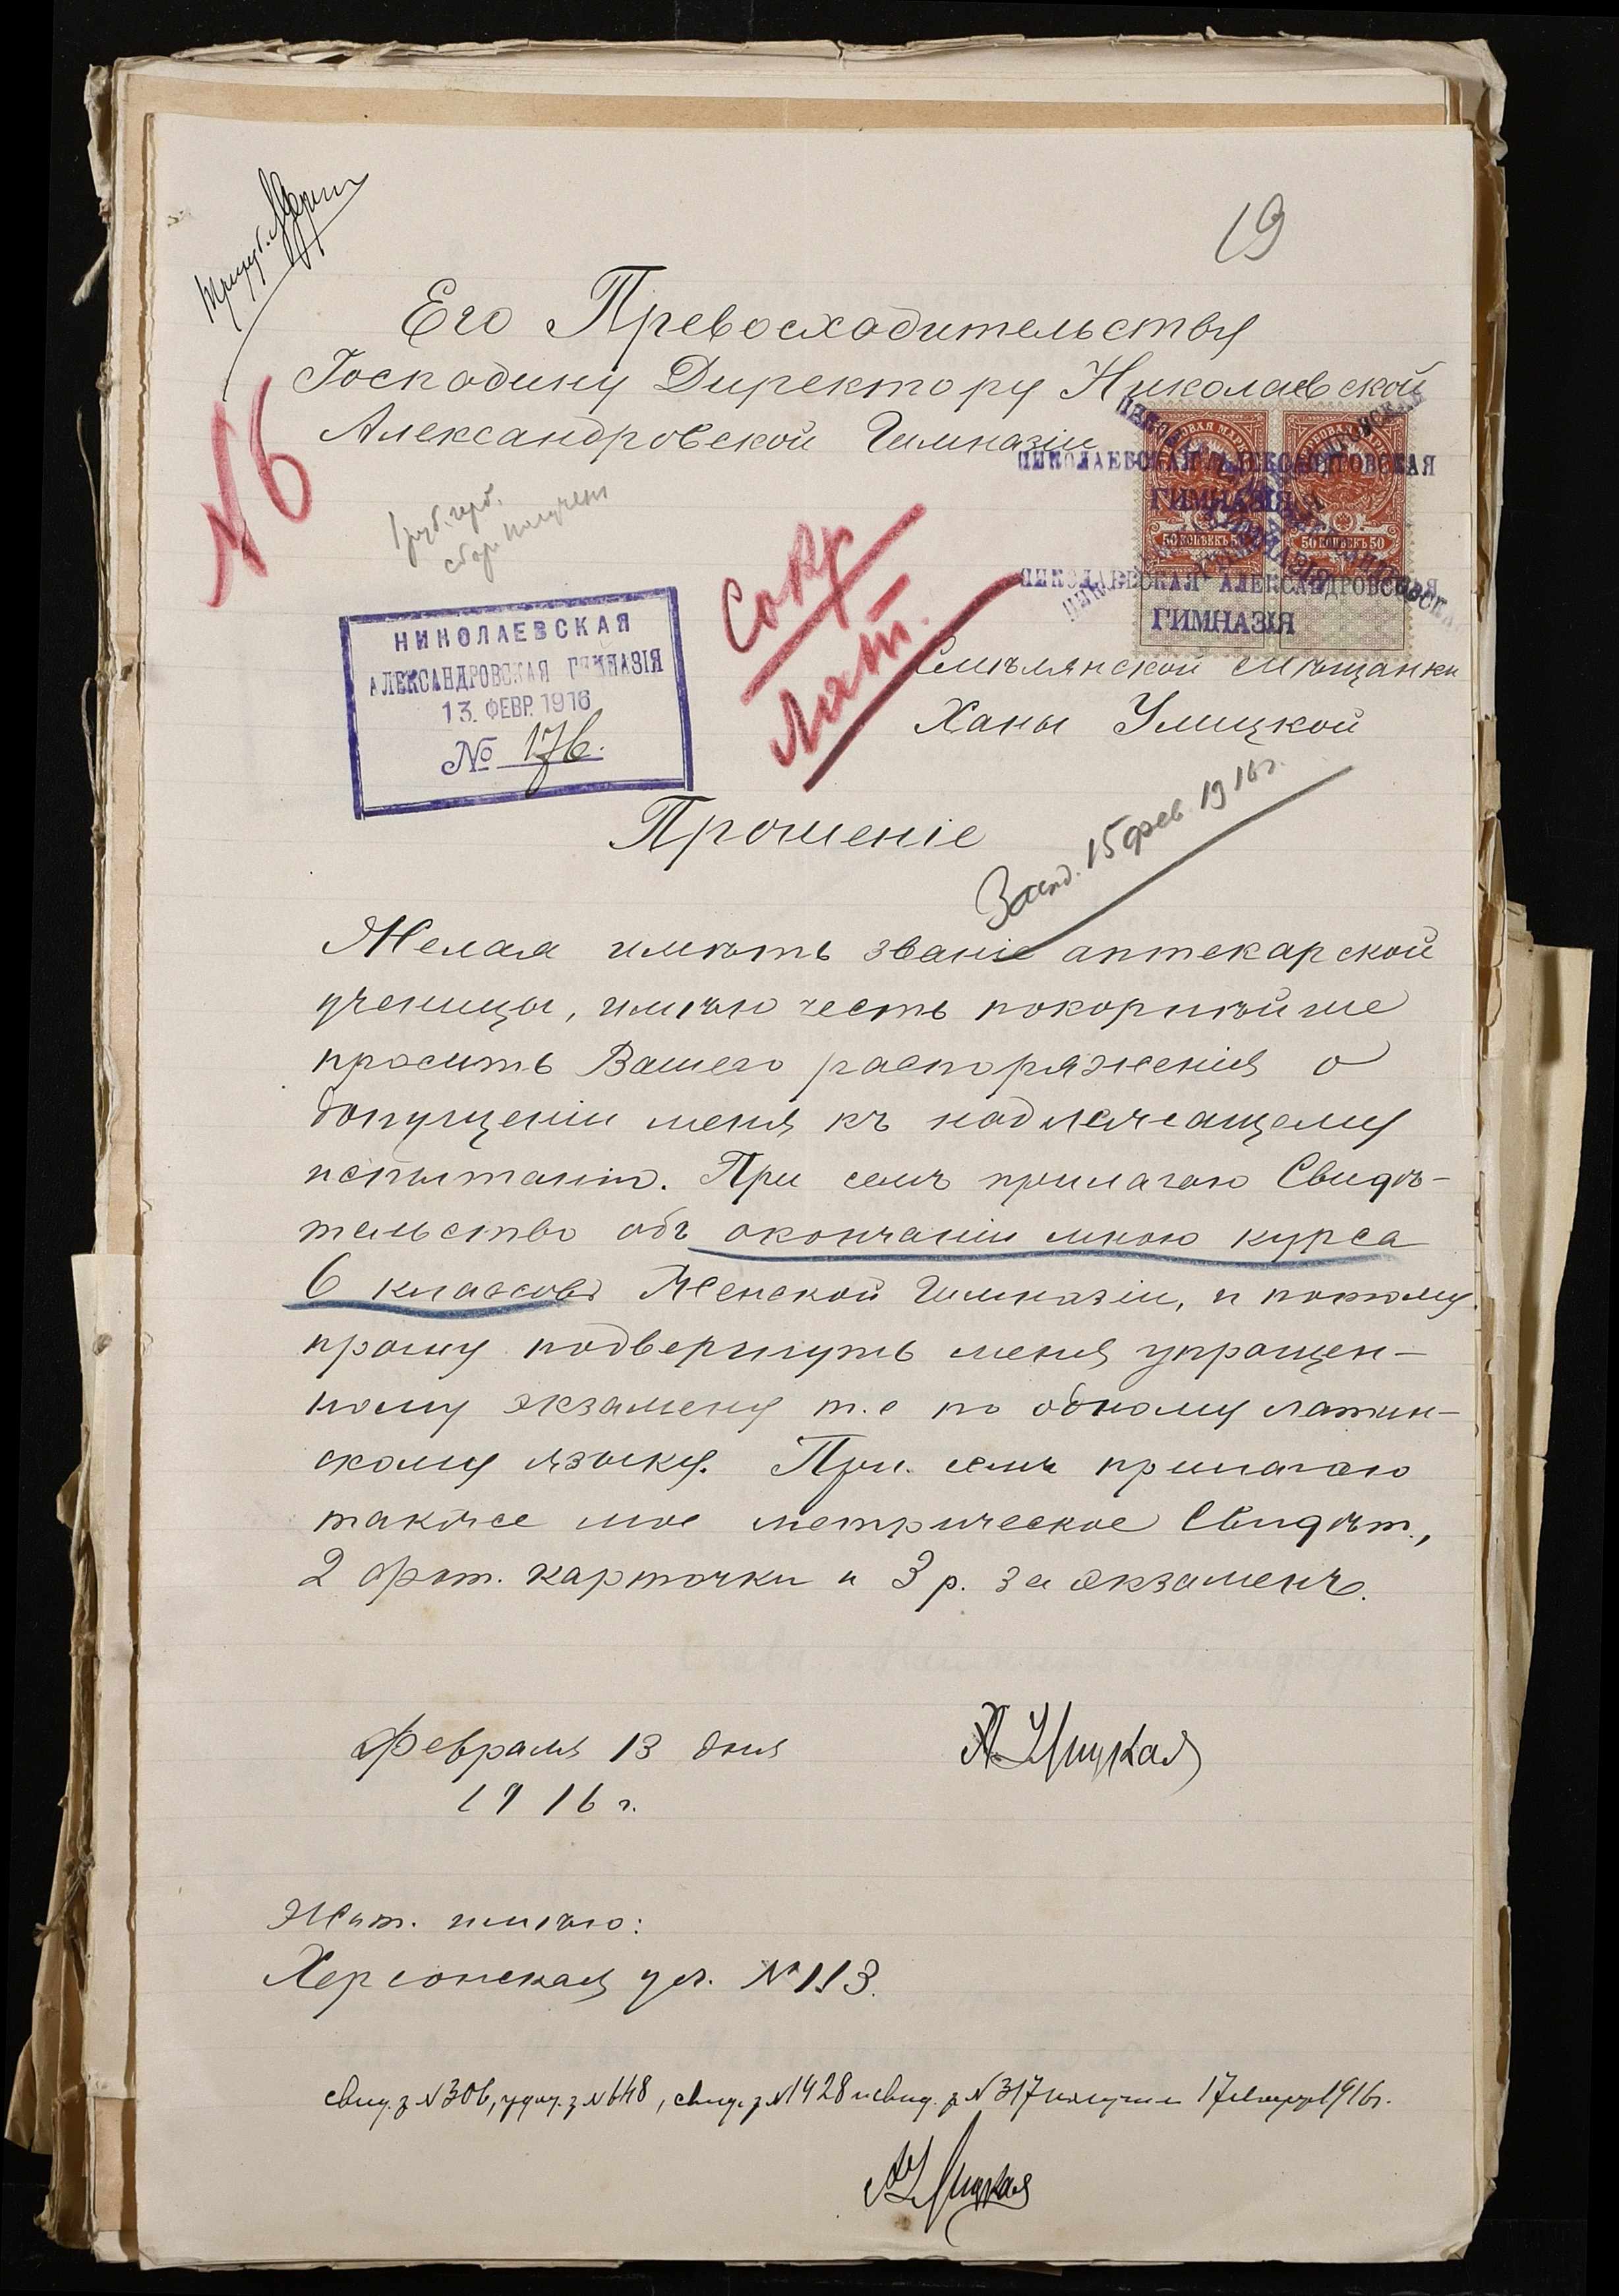 19
Его Превосходительству
Господину Директору Николаевской
Александровской Гимназіи
№6
1 руб. герб.
сбора получен
НИКОЛАЕВСКАЯ
АЛЕКСАНДРОВСКАЯ ГИМНАЗІЯ
13. ФЕВР. 1916
№ 176.
Сокр
Лат.
НИКОЛАЕВСКАЯ АЛЕКСАНДРОВСКАЯ
ГИМНАЗІЯ
50 КОПѢЕКЪ 50
50 КОПѢЕКЪ 50
НИКОЛАЕВСКАЯ АЛЕКСАНДРОВСКАЯ
ГИМНАЗІЯ
Смѣлянской мѣщанки
Ханы Улицкой
Прошеніе
15 фев. 1916г.
Желая имѣть званіе аптекарской
ученицы, имѣю честь покорнѣйше
просить Вашего распоряженія о
допущеніи меня къ надлежащему
испытанію. При семъ прилагаю Свидѣ-
тельство объ окончаніи мною курса
6 классовъ Женской Гимназіи, и потому
прошу подвергнуть меня упрощен-
ному экзамену т.е по одному латин-
скому языку. При. семъ прилагаю
также мое метрическое Свидѣт.,
2 фот. карточки и 3 р. за экзаменъ.
Февраля 13 дня
1916 г.
Х. Улицкая
Жит. имѣю:
Херсонская ул. №113.
свид. з №306, удос. з №648, свид. з №1428 и свид. з №317 получила 17 1916г.
Х Улицкая